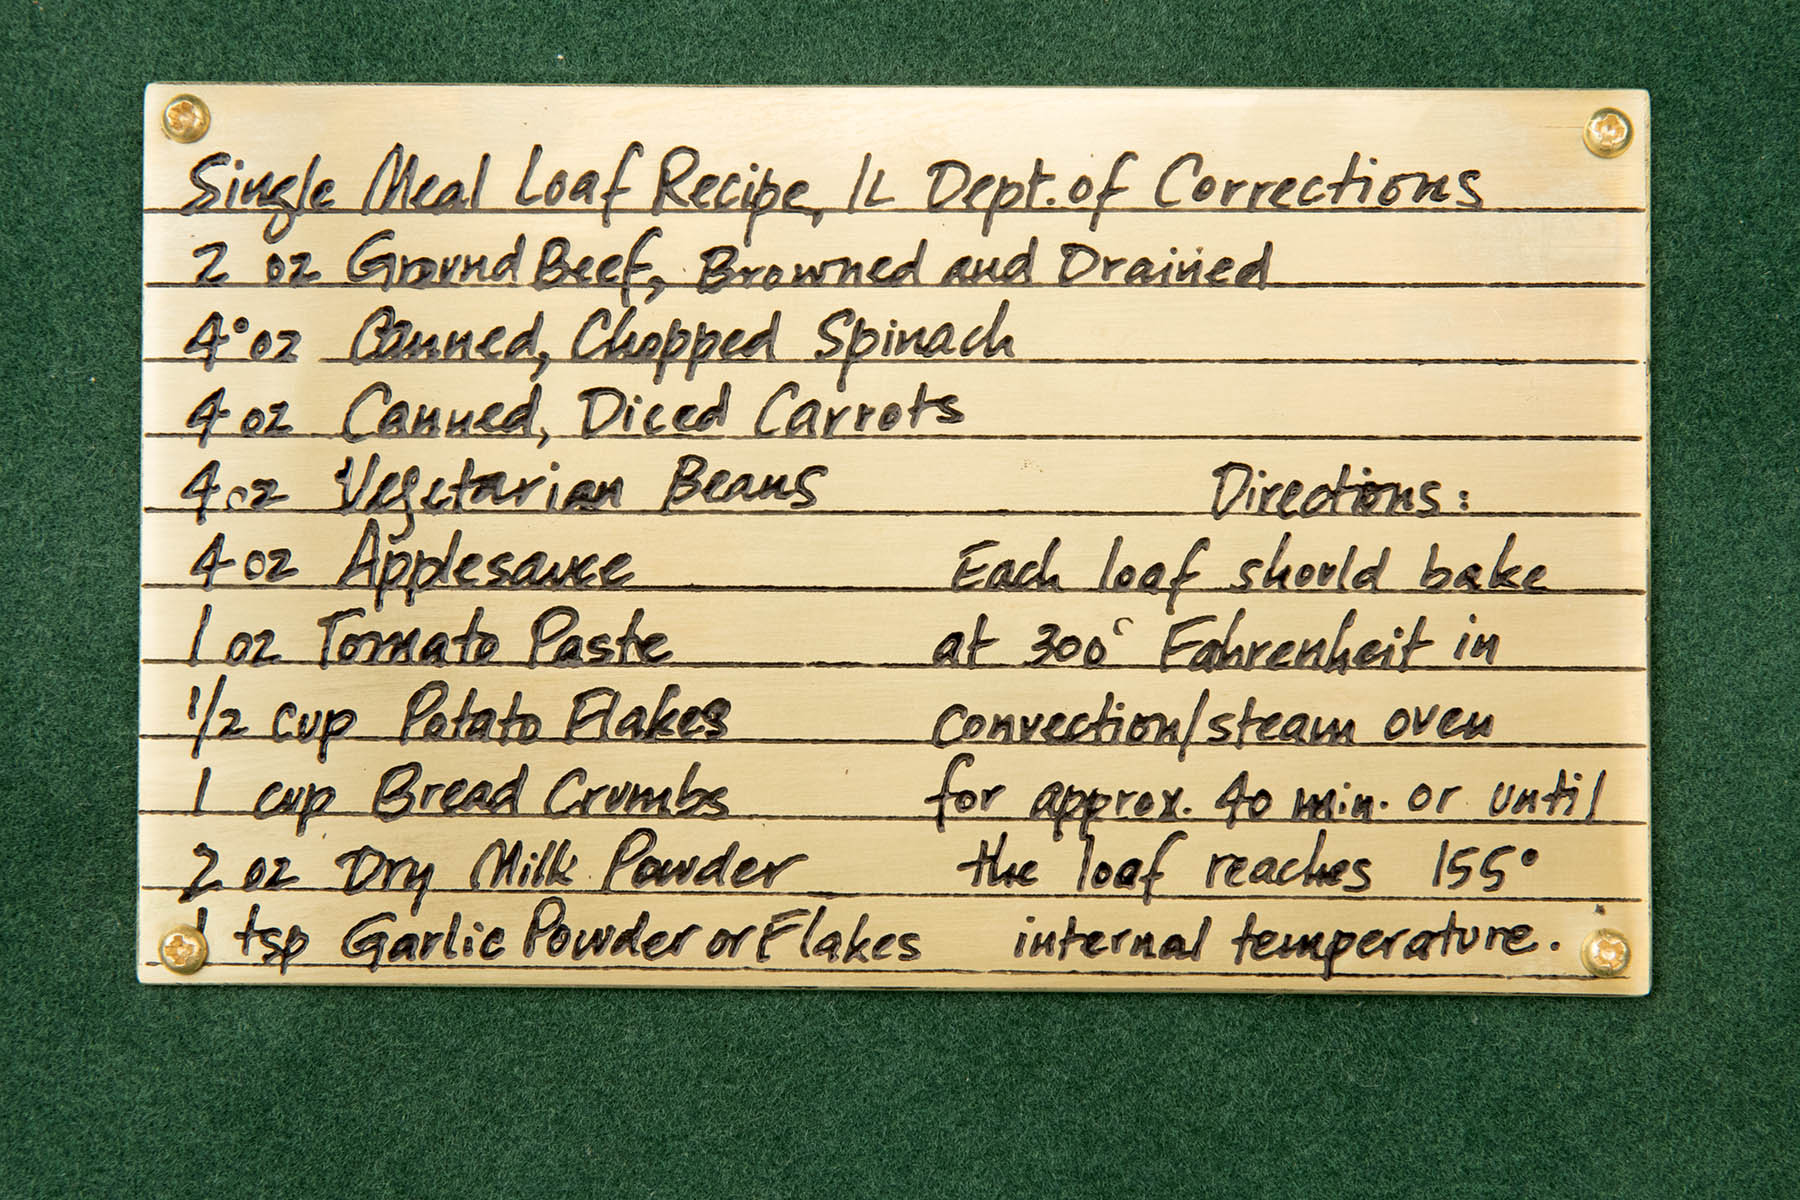 Single Meal Loaf Recipe, IL Dept. of Corrections
2 oz Ground Beef, Browned and Drained
4 oz Canned, Chopped Spinach
4 oz Canned, Diced Carrots
4 oz Vegetarian Beans
4 oz Applesauce
1 oz Tomato Paste
1/2 cup Potato Flakes
1 cup Bread Crumbs
2 oz Dry Milk Powder
1 tsp Garlic Powder or Flakes
Directions:
Each loaf should bake
at 300° Fahrenheit in
convection/steam oven
for approx. 40 min. or until
the loaf reaches 155°
internal temperature.